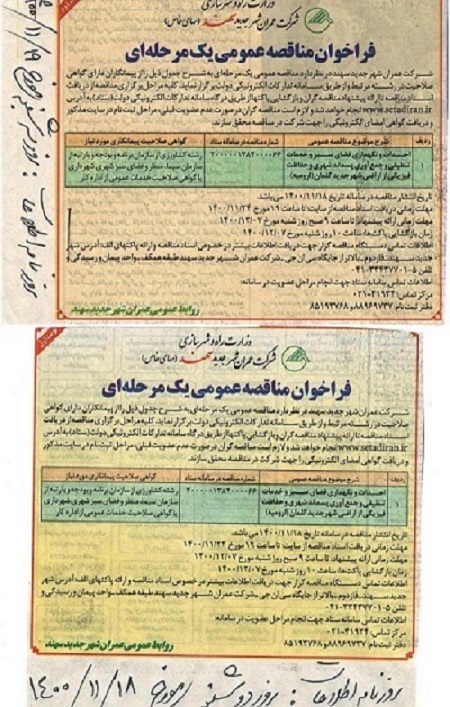 وزارت راه و شهرسازی
شرکت عمران شهر جدید سهند (سهامی خاص)
فراخوان مناقصه عمومی یک مرحله‌ای
شرکت عمران شهر جدید سهند در نظر دارد مناقصه عمومی یک مرحله‌ای به شرح جدول ذیل را از پیمانکاران دارای گواهی
صلاحیت در رشته مرتبط و از طریق سامانه تدارکات الکترونیکی دولت برگزار نماید. کلیه مراحل برگزاری مناقصه از دریافت
اسناد مناقصه تا ارائه پیشنهاد مناقصه گران و بازگشایی پاکتها از طریق درگاه سامانه تدارکات الکترونیکی دولت (ستاد) به آدرس
www.setadiran.ir انجام خواهد شد و لازم است مناقصه گران در صورت عدم عضویت قبلی، مراحل ثبت نام در سایت مذکور
و دریافت گواهی امضای الکترونیکی را جهت شرکت در مناقصه محقق سازند.
ردیف شرح موضوع مناقصه عمومی شماره مناقصه در سامانه ستاد گواهی صلاحیت پیمانکاری مورد نیاز
۱ احداث و نگهداری فضای سبز و خدمات
تنظیفی و جمع آوری پسماند شهری و حفاظت
فیزیکی از اراضی شهر جدید گلمان (ارومیه)
رشته کشاورزی از سازمان برنامه و بودجه و یا رتبه از
سازمان سیما، منظر و فضای سبز شهری شهرداری
یا گواهی صلاحیت خدمات عمومی از اداره کار
تاریخ انتشار مناقصه در سامانه تاریخ ۱۴۰۰/۱۱/۱۸ می‌باشد.
مهلت زمانی دریافت اسناد مناقصه از سایت: تا ساعت ۱۹ مورخ ۱۴۰۰/۱۱/۲۴
مهلت زمانی ارائه پیشنهاد: تا ساعت ۹ صبح روز شنبه مورخ ۱۴۰۰/۱۲/۰۷
زمان بازگشایی پاکت‌ها: ساعت ۱۰ روز شنبه مورخ ۱۴۰۰/۱۲/۰۷
اطلاعات تماس دستگاه مناقصه گزار جهت دریافت اطلاعات بیشتر در خصوص اسناد مناقصه و ارائه پاکتهای الف: آدرس شهر
جدید سهند، فاز دوم، بالاتر از جایگاه سی ان جی، شرکت عمران شهر جدید سهند طبقه همکف، واحد پیمان و رسیدگی و
تلفن ۵-۰۴۱-۳۳۴۴۷۷۰۱
اطلاعات تماس سامانه ستاد جهت انجام مراحل عضویت در سامانه:
مرکز تماس: ۰۲۱-۴۱۹۳۴
دفتر ثبت نام: ۸۸۹۶۹۷۳۷ و ۸۵۱۹۳۷۶۸
روابط عمومی عمران شهر جدید سهند
روزنامه اطلاعات : روز سه شنبه مورخ ۱۴۰۰/۱۱/۱۹
وزارت راه و شهرسازی
شرکت عمران شهر جدید سهند (سهامی خاص)
فراخوان مناقصه عمومی یک مرحله‌ای
شرکت عمران شهر جدید سهند در نظر دارد مناقصه عمومی یک مرحله‌ای به شرح جدول ذیل را از پیمانکاران دارای گواهی
صلاحیت در رشته مرتبط و از طریق سامانه تدارکات الکترونیکی دولت برگزار نماید. کلیه مراحل برگزاری مناقصه از دریافت
اسناد مناقصه تا ارائه پیشنهاد مناقصه گران و بازگشایی پاکتها از طریق درگاه سامانه تدارکات الکترونیکی دولت (ستاد) به آدرس
www.setadiran.ir انجام خواهد شد و لازم است مناقصه گران در صورت عدم عضویت قبلی، مراحل ثبت نام در سایت مذکور
و دریافت گواهی امضای الکترونیکی را جهت شرکت در مناقصه محقق سازند.
ردیف شرح موضوع مناقصه عمومی شماره مناقصه در سامانه ستاد گواهی صلاحیت پیمانکاری مورد نیاز
۱ احداث و نگهداری فضای سبز و خدمات
تنظیفی و جمع آوری پسماند شهری و حفاظت
فیزیکی از اراضی شهر جدید گلمان (ارومیه)
رشته کشاورزی از سازمان برنامه و بودجه و یا رتبه از
سازمان سیما، منظر و فضای سبز شهری شهرداری
یا گواهی صلاحیت خدمات عمومی از اداره کار
تاریخ انتشار مناقصه در سامانه تاریخ ۱۴۰۰/۱۱/۱۸ می‌باشد.
مهلت زمانی دریافت اسناد مناقصه از سایت: تا ساعت ۱۹ مورخ ۱۴۰۰/۱۱/۲۴
مهلت زمانی ارائه پیشنهاد: تا ساعت ۹ صبح روز شنبه مورخ ۱۴۰۰/۱۲/۰۷
زمان بازگشایی پاکت‌ها: ساعت ۱۰ روز شنبه مورخ ۱۴۰۰/۱۲/۰۷
اطلاعات تماس دستگاه مناقصه گزار جهت دریافت اطلاعات بیشتر در خصوص اسناد مناقصه و ارائه پاکتهای الف: آدرس شهر
جدید سهند، فاز دوم، بالاتر از جایگاه سی ان جی، شرکت عمران شهر جدید سهند طبقه همکف، واحد پیمان و رسیدگی و
تلفن ۵-۰۴۱-۳۳۴۴۷۷۰۱
اطلاعات تماس سامانه ستاد جهت انجام مراحل عضویت در سامانه:
مرکز تماس: ۰۲۱-۴۱۹۳۴
دفتر ثبت نام: ۸۸۹۶۹۷۳۷ و ۸۵۱۹۳۷۶۸
روابط عمومی عمران شهر جدید سهند
روزنامه اطلاعات : روز دوشنبه مورخ ۱۴۰۰/۱۱/۱۸